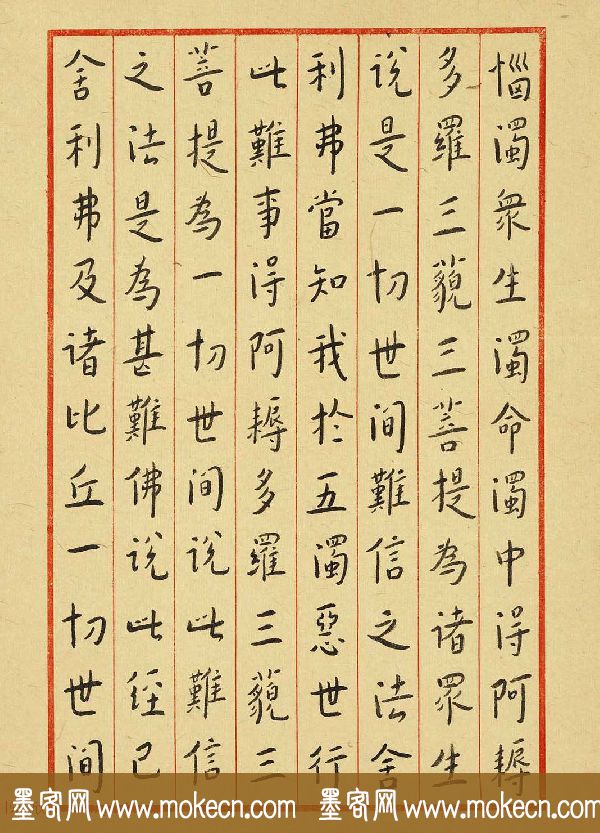 惱濁衆生濁命濁中得阿耨
多羅三藐三菩提為諸眾生
說是一切世間難信之法舍
利弗當知我於五濁惡世行
此難事得阿耨多羅三藐三
菩提為一切世间說此難信
之法是為甚難佛說此經已
舍利弗及诸比丘一切世间
墨客网 www.mokecn.com 墨客网 www.mokecn.com 墨客网